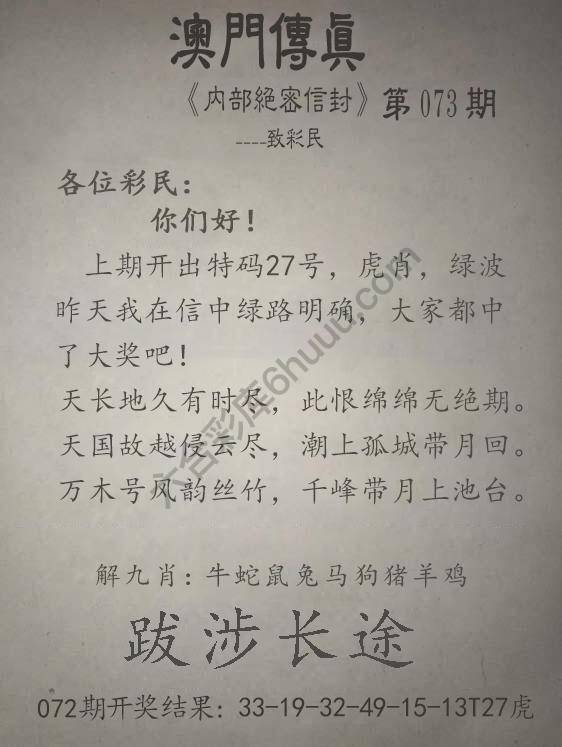 澳門傳真
《内部絕密信封》第073期
----致彩民
各位彩民：
你们好！
上期开出特码27号，虎肖，绿波
昨天我在信中绿路明确，大家都中
了大奖吧！
天长地久有时尽，此恨绵绵无绝期。
天国故越侵云尽，潮上孤城带月回。
万木号风韵丝竹，千峰带月上池台。
解九肖：牛蛇鼠兔马狗猪羊鸡
跋涉长途
072期开奖结果：33-19-32-49-15-13T27虎
六合彩库6huuu.com